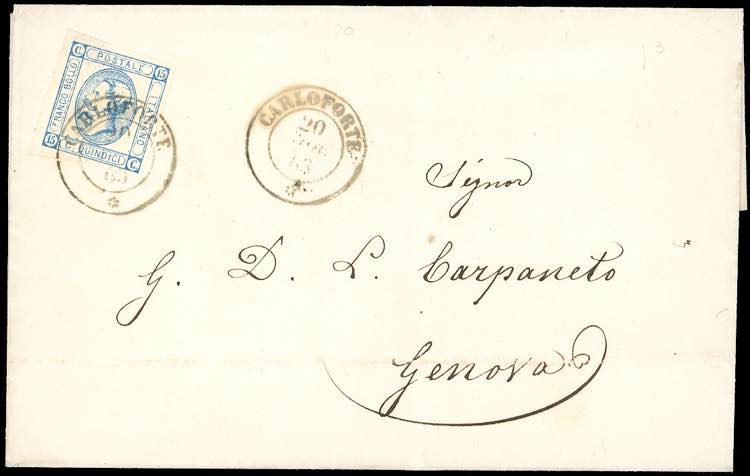 C. POSTALE 15
FRANCO BOLLO
ITALIANO
15 C. QUINDICI C.
CARLOFORTE
63
CARLOFORTE
20
63
Signor
G. D. L. Carpaneto
Genova